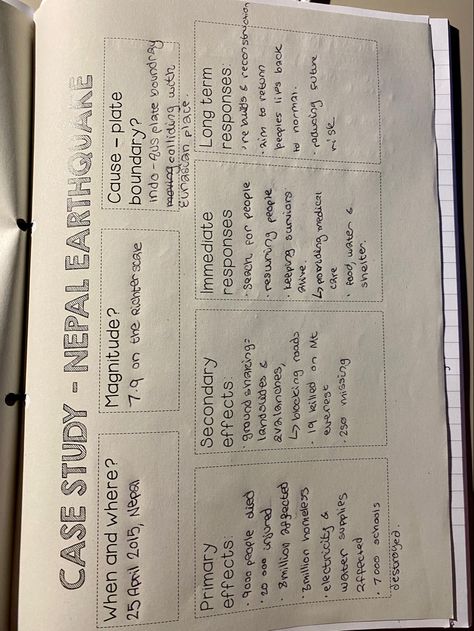 CASE STUDY - NEPAL EARTHQUAKE
When and where?
25 April 2015, Nepal
Magnitude?
7.9 on the Richter scale
Cause – plate
boundary?
Indo-Aus plate boundray
moving colliding with
Eurasian plate.
Primary
effects:
· 9000 people died
· 20 000 injured
· 8million affected
· 3million homeless
· electricity &
water supplies
affected
· 7000 schools
destroyed.
Secondary
effects:
· ground shaking=
landslides &
avalanches,
↳ blocking roads
· 19 killed on Mt
everest
· 250 missing
Immediate
responses
· seach for people
· resuming people
· keeping surviors
alive.
↳ providing medical
care
· food, water &
shelter.
Long term
responses:
· rebuilds & reconstruction
· aim to return
peoples lies back
to normal.
· reducing future
risk.